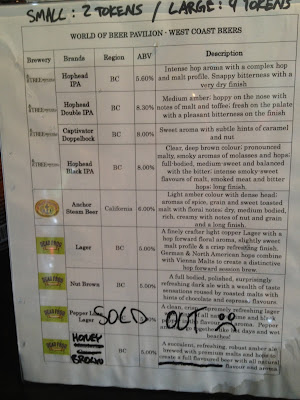 SMALL: 2 TOKENS / LARGE: 4 TOKENS
WORLD OF BEER PAVILION - WEST COAST BEERS
Brewery Brands Region ABV Description
TREE Hophead IPA BC 5.60% Intense hop aroma with a complex hop
and malt profile. Snappy bitterness with a
very dry finish
TREE Hophead Double IPA BC 8.30% Medium amber: hoppy on the nose with
notes of malt and toffee: fresh on the palate
with a pleasant bitterness on the finish
TREE Captivator Doppelbock BC 8.00% Sweet aroma with subtle hints of caramel and
nut
TREE Hophead Black IPA BC 8.00% Clear, deep brown colour: pronounced
malty, smoky aromas of molasses and hops:
full-bodied, medium-sweet and balanced
with the bitter: intense smoky-sweet
flavours of malt, smoked meat and bitter
hops: long finish.
Anchor Steam Beer California 6.00% Light amber colour with dense head:
aromas of spice, grain and sweet toasted
malt with floral notes: dry, medium bodied,
rich, creamy with notes of nut and grain
and a long finish.
Lager BC 5.00% A finely crafted light copper Lager with a
hop forward floral aroma, slightly sweet
malt profile & a crisp refreshing finish.
German & North American hops combine
with Vienna Malts to create a distinctive
hop forward session brew.
Nut Brown BC 5.00% A full bodied, polished, surprisingly
refreshing dark ale with a wealth of taste
sensations roused by toasted malts with
hints of chocolate and espresso, flavours.
Pepper Lager SOLD OUT
refreshing lager
all
flavour
aroma. Pepper
like
and wet
beaches!
HONEY BROWN BC 5.00% A succulent, refreshing, robust amber ale
brewed with premium malts and hops to
create a full flavoured beer with all natural
flavour and aroma